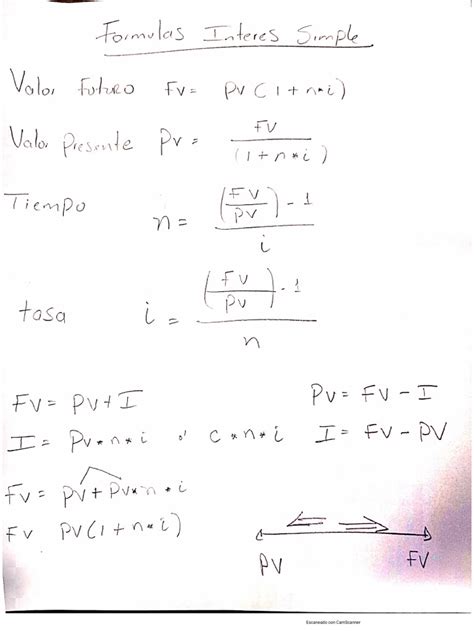 Formulas Interes Simple
Valor Futuro FV= PV(1+n*i)
Valor Presente PV= FV/(1+n*i)
Tiempo n= ((FV/PV)-1)/i
tasa i= ((FV/PV)-1)/n
FV= PV+I PV= FV-I
I= PV*n*i o' C*n*i I= FV-PV
FV= PV+PV*n*i
FV PV(1+n*i)
PV FV
Escaneado con CamScanner